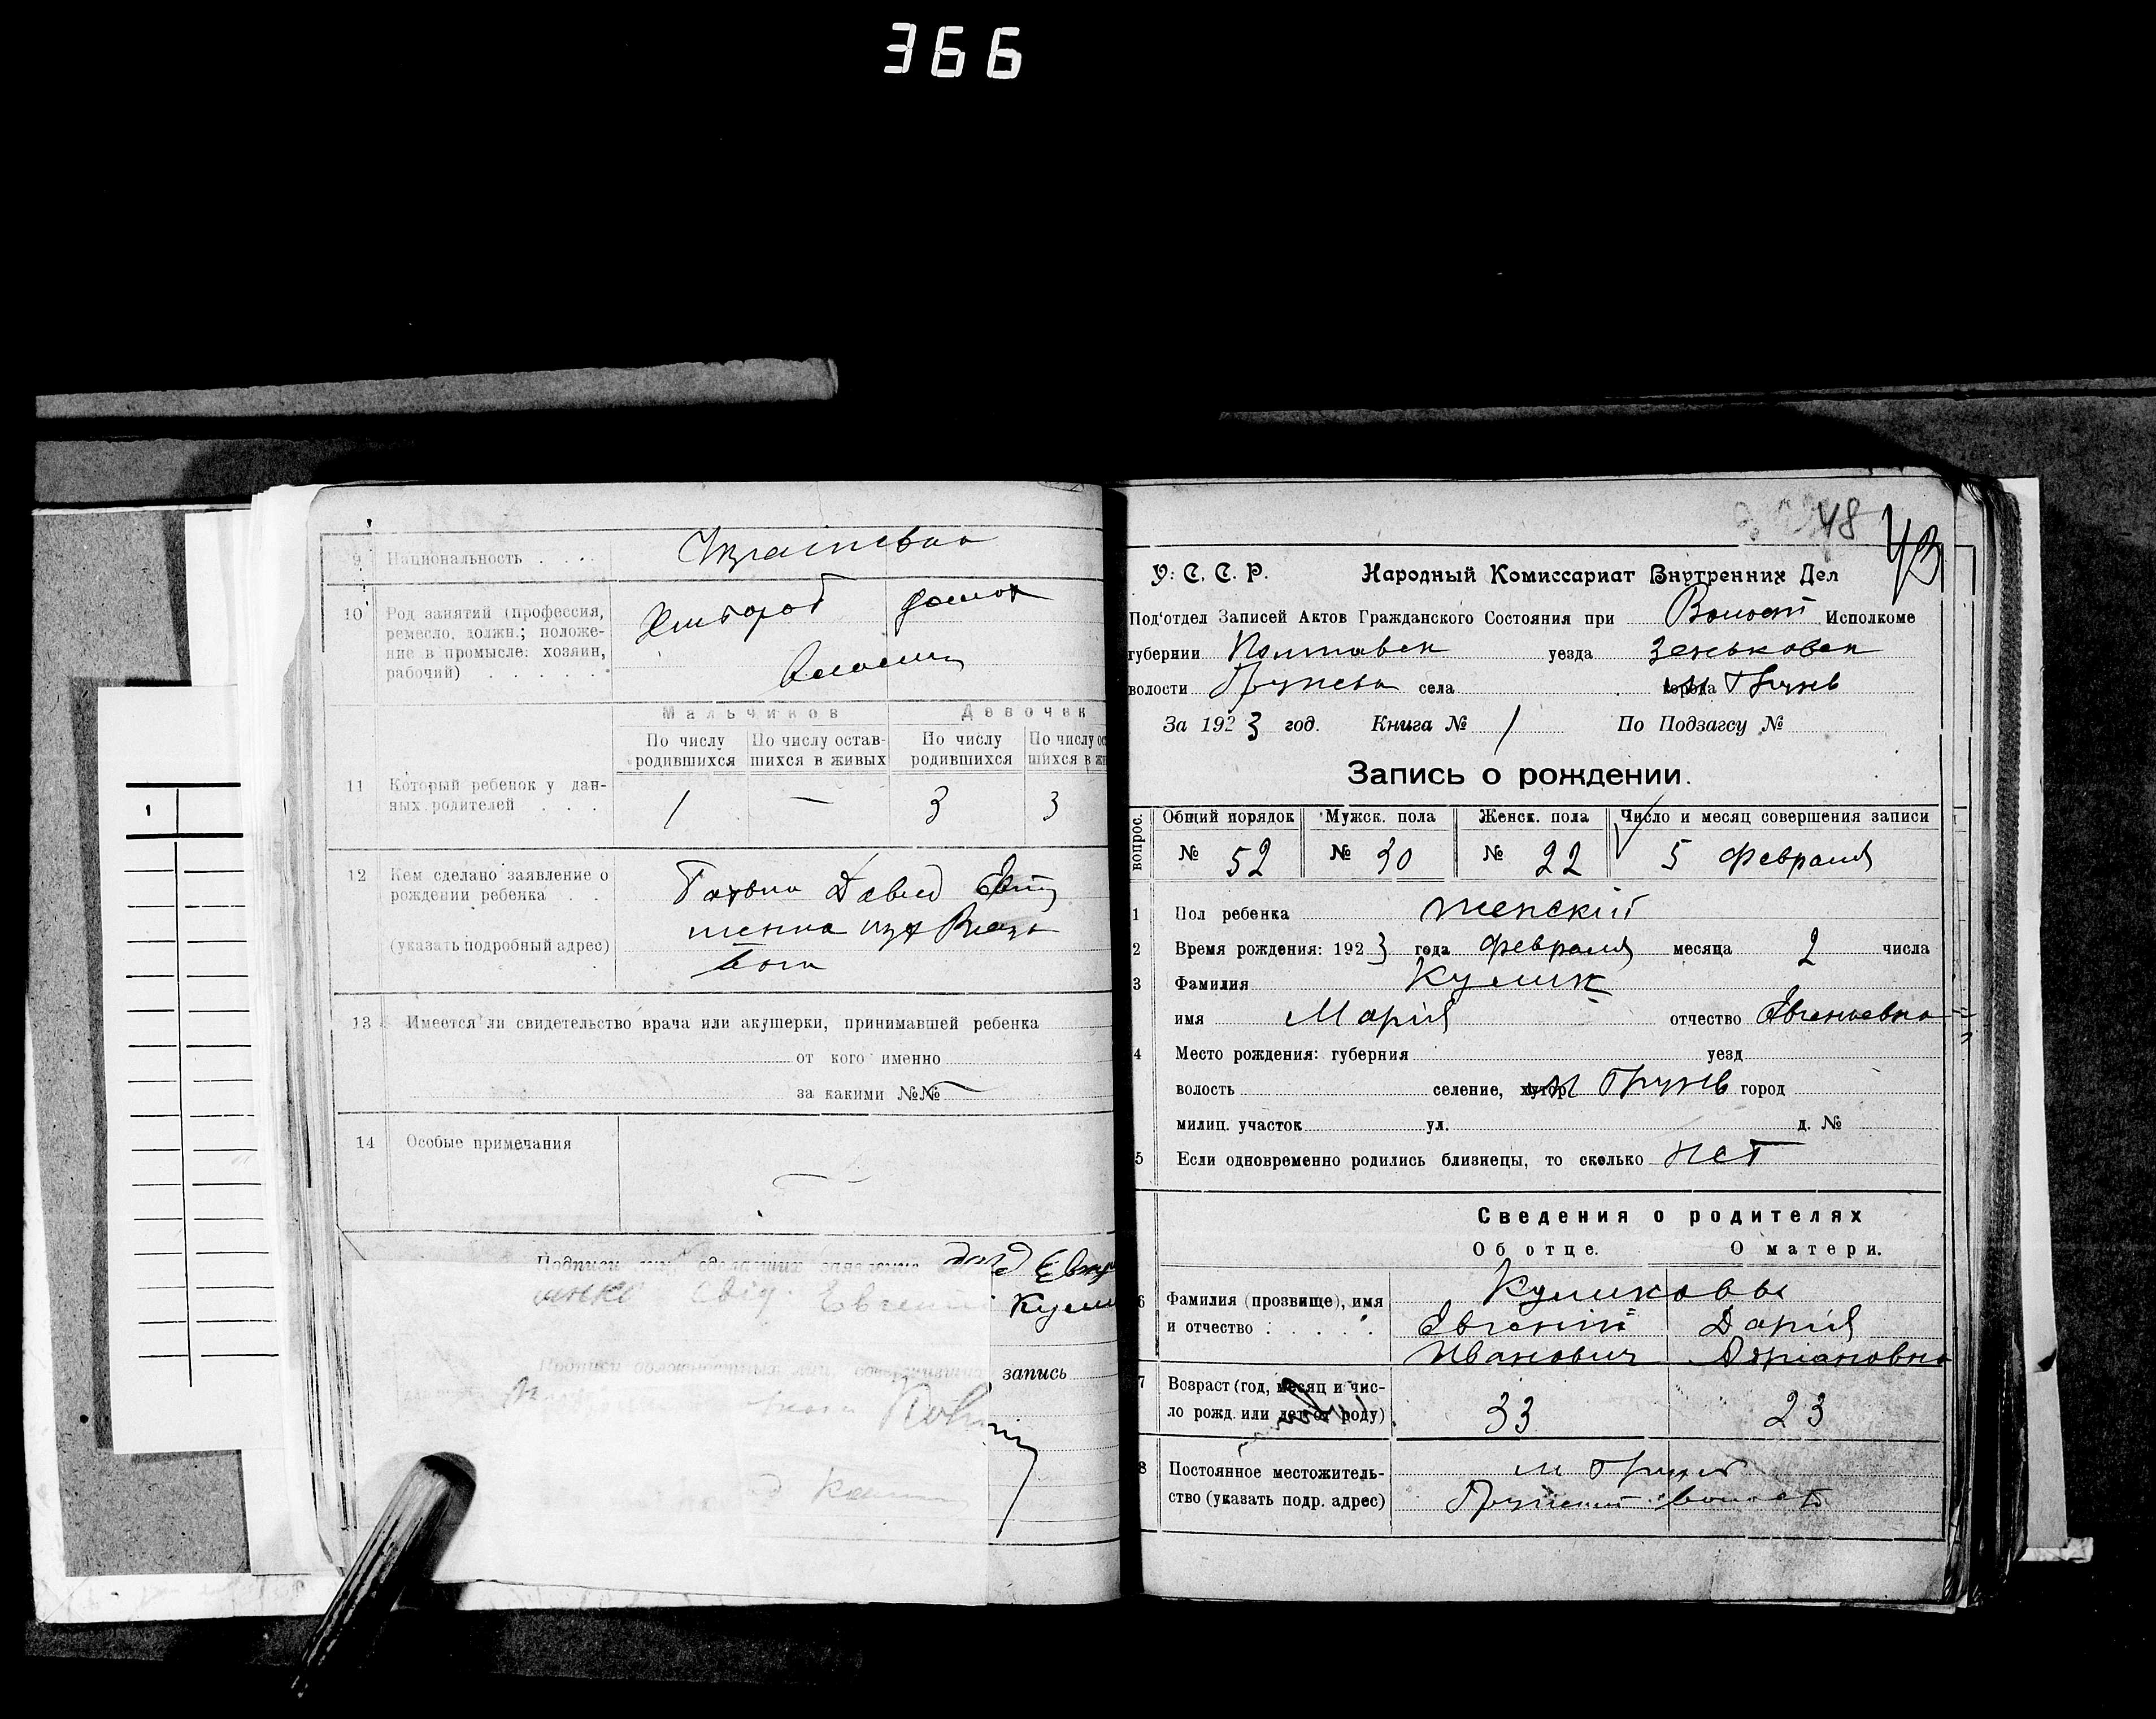 366
9 Национальность . . . .
10 Род занятий (профессия,
ремесло, должн.; положе-
ние в промысле: хозяин,
рабочий) . . . . . .
Мальчиков Девочек
По числу родившихся По числу оставшихся в живых По числу родившихся
11 Который ребенок у дан-
ных родителей . . .
1 — 3 3
12 Кем сделано заявление о
рождении ребенка . .
(указать подробный адрес)
Давид
13 Имеется ли свидетельство врача или акушерки, принимавшей ребенка
от кого именно
за какими №№ —
14 Особые примечания
—
Евгений
запись
48 43
У. С. С. Р. Народный Комиссариат Внутренних Дел
Под'отдел Записей Актов Гражданского Состояния при Волост Исполкоме
губернии Полтавск уезда Зеньковск
волости села города м Грунь
За 1923 год. Книга № 1 По Подзагсу №
Запись о рождении.
вопрос. Общий порядок Мужск. пола Женск. пола Число и месяц совершения записи
№ 52 № 30 № 22 5 февраля
1 Пол ребенка женский
2 Время рождения: 1923 года февраля месяца 2 числа
3 Фамилия Кулик
имя Марія отчество Евгеньевна
4 Место рождения: губерния уезд
волость селение, хутор м Грунь город
милиц. участок ул. д. №
5 Если одновременно родились близнецы, то сколько нет
Сведения о родителях
Об отце. О матери.
Куликовы
6 Фамилия (прозвище), имя
и отчество : . . . .
Евгений Дарія
Иванович Адриановна
7 Возраст (год, месяц и чис-
ло рожд. или лет от роду)
33 23
8 Постоянное местожитель-
ство (указать подр. адрес)
м Грунь
волость